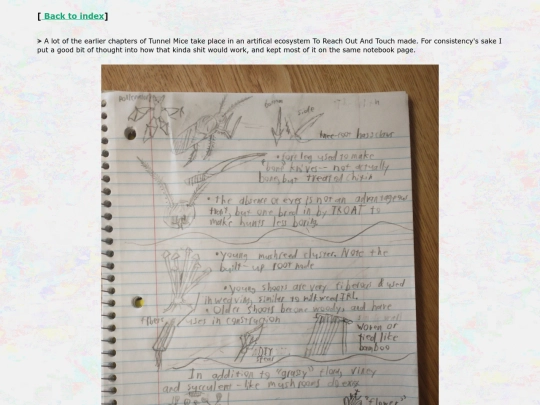 [ Back to index]
> A lot of the earlier chapters of Tunnel Mice take place in an artifical ecosystem To Reach Out And Touch made. For consistency's sake I
put a good bit of thought into how that kinda shit would work, and kept most of it on the same notebook page.
• foreleg used to make
bone knives - not actually
bone, but treated chitin
• The absence of eyes is not an advantageous
trait, but one bred in by TROAT to
make hunts less boring
• young mushreed cluster. Note the
built-up root node
• young shoots are very fiberous & used
in weaving, similar to
• Older shoots become woody, and have
uses in construction
woven or
tied like
bamboo
In addition to "grassy" flora, viney
and succulent-like mushrooms do exist